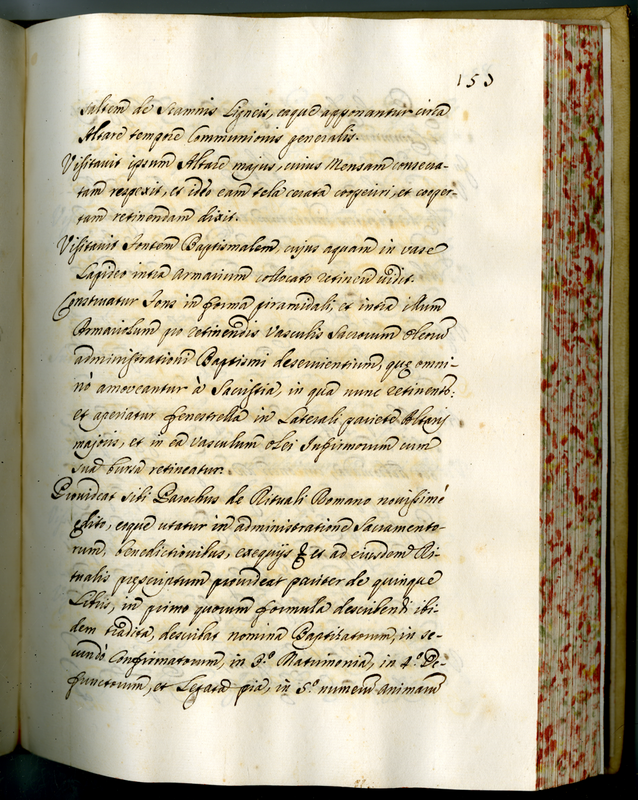 153
saltem de Scamnis Ligneis, eaque apponantur circa
Altare tempore Communionis generalis.
Visitavit ipsum Altare majus, cuius Mensam consecra-
tam respexit, et ideo eam tela cerata cooperiri, et cooper-
tam retinendam dixit.
Visitavit Fontem Baptismalem, cujus aquam in vase
Lapideo intra armarium collocato retineri vidit.
Construatur Fons in forma piramidali, et intra illum
Armariolum pro retinendis Vasculis Sacrorum Oleorum
administrationi Baptismi deservientium, quæ omni-
nò amoveantur à Sacristia, in qua nunc retinentur:
et aperiatur fenestrella in Laterali pariete Altaris
majoris, et in ea vasculum olei Infirmorum cum
sua bursa retineatur.
Provideat sibi Parochus de Rituali Romano novissimè
edito, eoque utatur in administratione Sacramento-
rum, benedictionibus, exequijs & et ad eiusdem Ri-
tualis præscriptum provideat pariter de quinque
Libris, in primo quorum formula describendi ibi-
dem tradita, describat nomina Baptizatorum, in se-
cundo Confirmatorum, in 3.º Matrimonia, in 4.º De-
functorum, et Legata pia, in 5.º numerum animarum